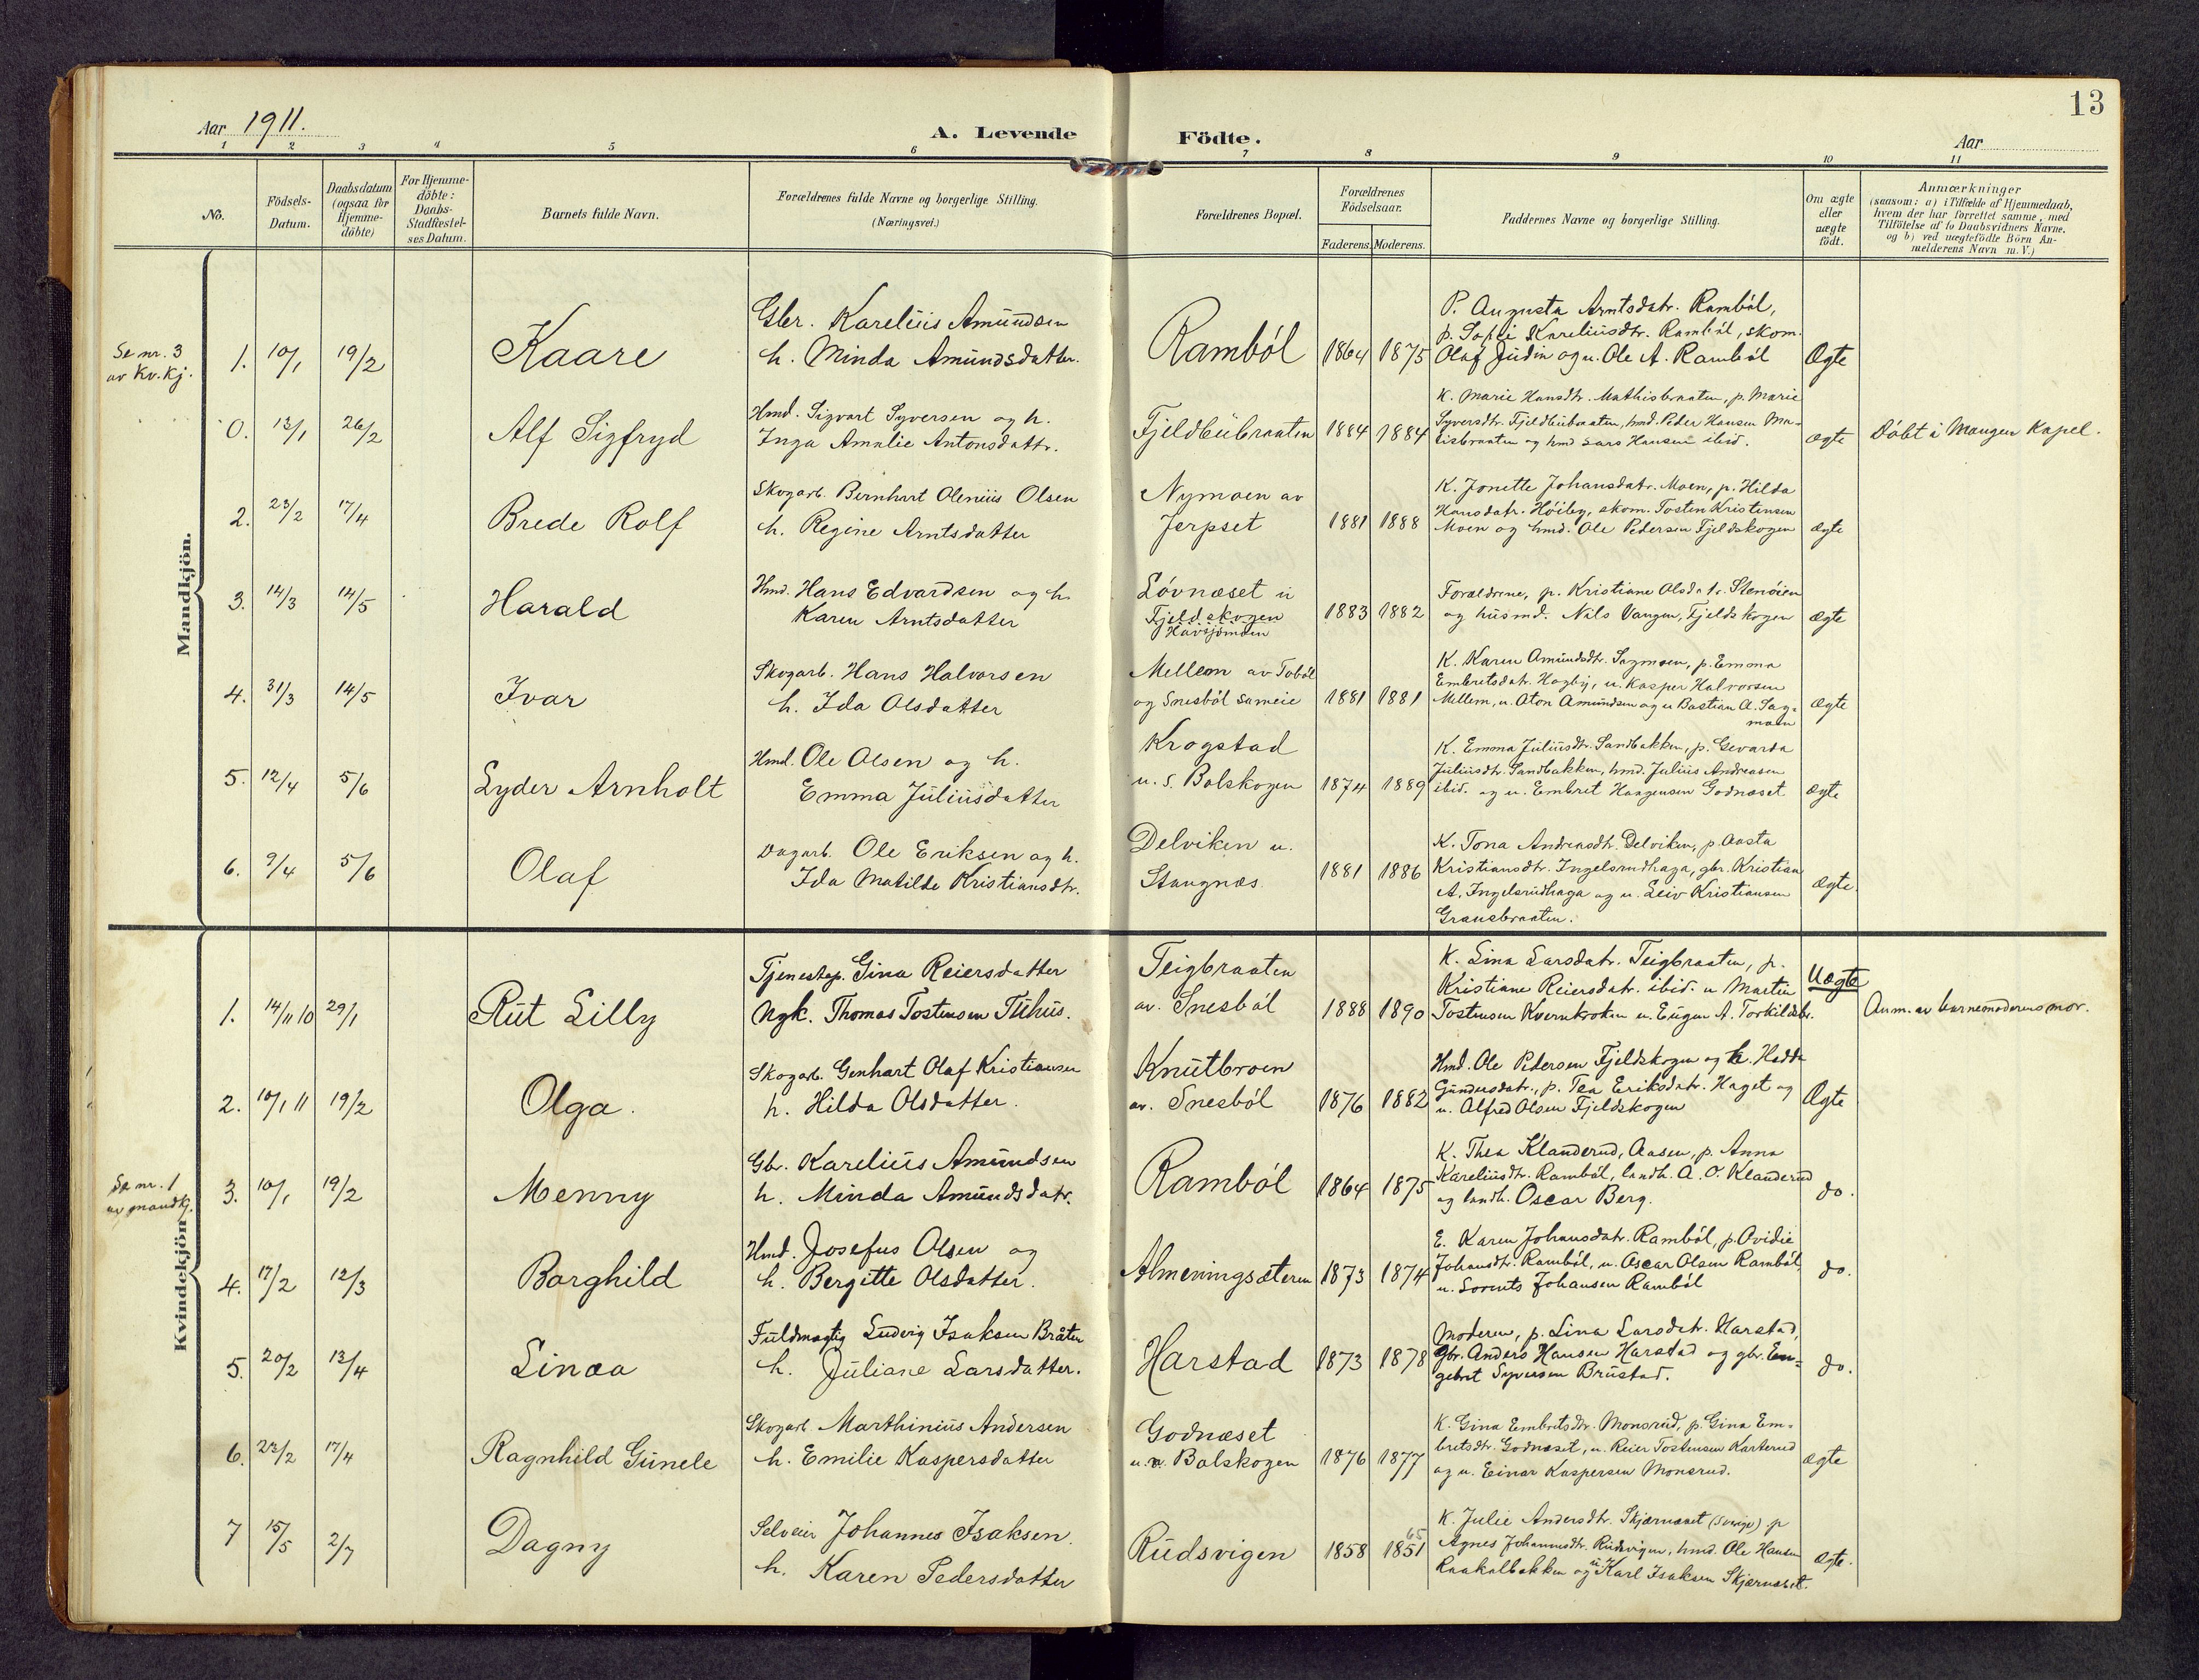 13
Aar 1911.
A. Levende
Födte.
Aar
1 2 3 4 5 6 7 8 9 10 11
No.
Födsels-
Datum.
Daabsdatum
(ogsaa for
Hjemme-
döbte)
For Hjemme-
döbte:
Daabs-
Stadfæstel-
ses Datum.
Barnets fulde Navn.
Forældrenes fulde Navne og borgerlige Stilling.
(Næringsvei.)
Forældrenes Bopæl.
Forældrenes
Födselsaar.
Faderens. Moderens.
Faddernes Navne og borgerlige Stilling.
Om ægte
eller
uægte
födt.
Anmærkninger
(saasom: a) i Tilfælde af Hjemmedaab,
hvem der har forrettet samme, med
Tilföielse af to Daabsvidners Navne.
og b) ved uægtefödte Börn An-
melderens Navn m. V.)
Mandkjön.
Se nr. 3
av Kv. kj.
1. 10/1 19/2
Kaare
Gbr. Karelius Amundsen
h. Minda Amundsdatter.
Ramból
1864 1875
P. Augusta Arntsdatr. Ramból,
p. Sofie Kareliusdtr. Ramból, skom.
Olaf Judin og u. Ole A. Ramból
Ægte
0. 13/1 26/2
Alf Sigfryd
Hmd. Sigvart Syversen og h.
Inga Amalie Antonsdattr.
Fjeldbubraaten
1884 1884
K. Marie Hansdtr. Mathisbraaten, p. Marie
Syversdtr. Fjeldbubraaten, hmd. Peder Hansen Ma-
tisbraaten og hmd Lars Hansen ibid.
ægte
Döbt i Mangen Kapel.
2. 23/2 17/4
Brede Rolf
Skogarb. Bernhart Olenius Olsen
h. Regine Arntsdatter
Nymoen av
Jerpset
1881 1888
K. Jonette Johansdatr. Moen, p. Hilda
Hansdatr. Höiby, skom. Tosten Kristensen
Moen og hmd. Ole Pedersen Fjeldskogen
ægte
3. 14/3 14/5
Harald
Hmd. Hans Edvardsen og h.
Karen Arntsdatter
Lóvnæset u
Fjeldskogen
Havsjömoen
1883 1882
Forældrene, p. Kristiane Olsdatr. Stenóien
og husmd. Nils Vangen, Fjeldskogen
ægte
4. 31/3 14/5
Ivar
Skogarb. Hans Halvorsen
h. Ida Olsdatter
Mellem av Toból
og Snesból sameie
1881 1881
K. Karen Amundsdtr. Sagmoen, p. Emma
Embretsdatr. Hagby, u. Kasper Halvorsen
Mellem, u. Aton Amundsen og u Bastian A. Sag-
moen
ægte
5. 12/4 5/6
Lyder Arnholt
Hmd. Ole Olsen og h.
Emma Juliusdatter
Krogstad
u. s. Bolskogen
1874 1889
K. Emma Juliusdtr. Sandbakken, p. Gevarda
Juliusdtr. Sandbakken, hmd. Julius Andreasen
ibid. og u. Embret Haagensen Godnæset
ægte
6. 9/4 5/6
Olaf
Dagarb. Ole Eriksen og h.
Ida Matilde Kristiansdtr.
Delviken u.
Stangnæs
1881 1886
K. Tona Andreasdtr. Delviken, p. Aasta
Kristiansdtr. Ingelsrudhaga, gbr. Kristian
A. Ingelsrudhaga og u. Leiv Kristiansen
Gransbraaten.
Ægte.
Kvindekjön
1. 14/11 10 29/1
Rut Lilly
Tjenestep. Gina Reiersdatter
Ngk. Thomas Tostensen Tuhus.
Teigbraaten
av. Snesból
1888 1890
K. Lina Larsdatr. Teigbraaten, p.
Kristiane Reiersdatr. ibid. u Martin
Tostensen Kvernkroken u. Eugen A. Torkildsbr.
Uægte
Anm. av barnemoderens mor.
2. 10/1 11 19/2
Olga.
Skogarb. Genhart Olaf Kristiansen
h. Hilda Olsdatter.
Knutbroen
av. Snesból
1876 1882
Hmd. Ole Pedersen Fjeldskogen og h. Hedda
Gundersdatr., p. Tea Eriksdatr. Haget og
u. Alfred Olsen Fjeldskogen
Ægte
Se nr. 1
av mandkj.
3. 10/1 19/2
Menny
Gbr. Karelius Amundsen
h. Minda Amundsdatr.
Ramból
1864 1875
K. Thea Klanderud, Aasen, p. Anna
Kareliusdtr. Ramból, landh. A. O. Klanderud
og landh. Oscar Berg.
do.
4. 17/2 12/3
Borghild
Hmd. Josefus Olsen og
h. Bergitte Olsdatter.
Almeningsæteren
1873 1874
E. Karen Johansdatr. Ramból, p. Ovidie
Johansdtr. Ramból, u. Oscar Olsen Ramból,
u. Lorents Johansen Ramból
do.
5. 20/2 13/4
Linea
Fuldmagtig Ludvig Isaksen Bråten
h. Juliane Larsdatter.
Harstad
1873 1878
Moderen, p. Lina Larsdatr. Harstad,
gbr. Anders Hansen Harstad og gbr. En-
gebret Syversen Brustad.
do.
6. 23/2 17/4
Ragnhild Gunele
Skogarb Marthinius Andersen
h. Emilie Kaspersdatter
Godnæset
u. n. Bolskogen
1876 1877
K. Gina Embretsdtr. Monsrud, p. Gina Em-
bretsdtr. Godnæset, u. Reier Tostensen Karterud
og u. Einar Kaspersen Monsrud.
ægte
7 15/5 2/7
Dagny
Selveier Johannes Isaksen.
h. Karen Pedersdatter
Rudsvigen
1858 1851 65
K. Julie Andersdtr. Skjærnæset (Sverige) p
Agnes Johannesdtr. Rudsvigen, hmd. Ole Hansen
Raakalbakken og u. Karl Isaksen Skjærnæset.
ægte.